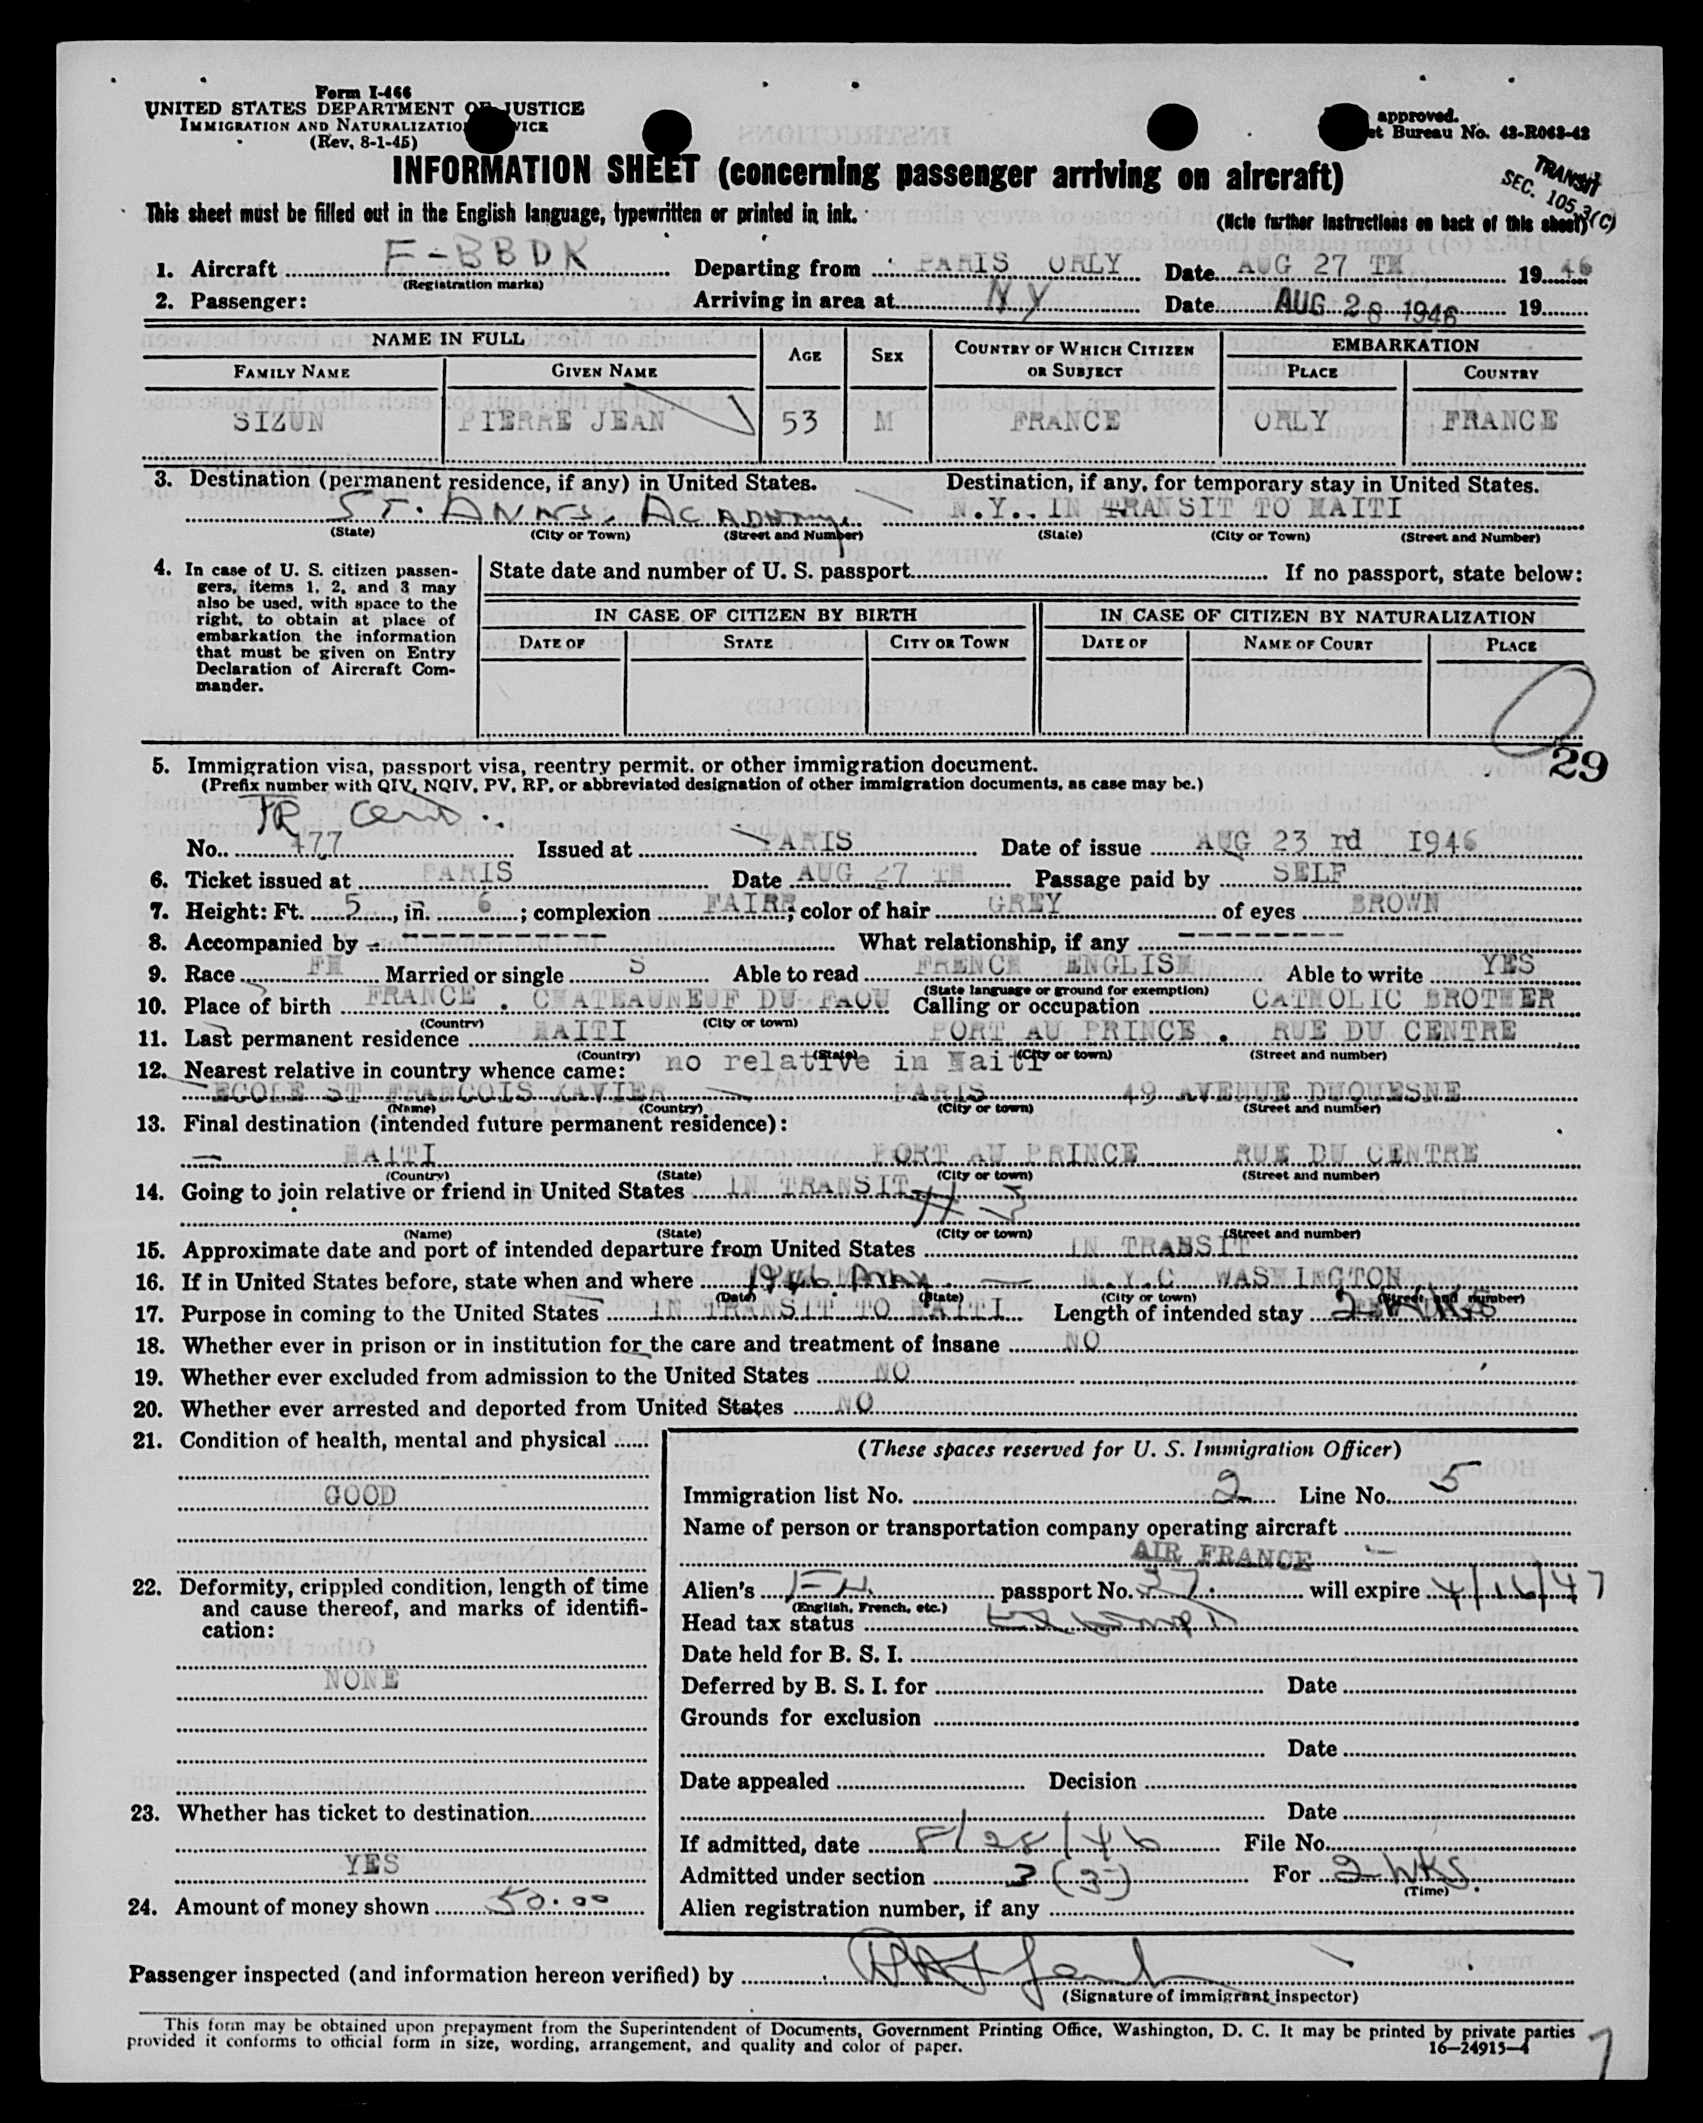 Form I-466
UNITED STATES DEPARTMENT OF JUSTICE
IMMIGRATION AND NATURALIZATION SERVICE
(Rev. 8-1-45)
approved.
Bureau No. 43-R063-42
INFORMATION SHEET (concerning passenger arriving on aircraft)
TRANSIT
SEC. 105.3(C)
This sheet must be filled out in the English language, typewritten or printed in ink.
(Note further instructions on back of this sheet)
1. Aircraft F-BBDK Departing from PARIS ORLY Date AUG 27 TH 1946
(Registration marks)
2. Passenger: Arriving in area at NY Date AUG 28 1946 19
NAME IN FULL AGE SEX COUNTRY OF WHICH CITIZEN OR SUBJECT EMBARKATION
FAMILY NAME GIVEN NAME PLACE COUNTRY
SIZUN PIERRE JEAN 53 M FRANCE ORLY FRANCE
3. Destination (permanent residence, if any) in United States. Destination, if any, for temporary stay in United States.
ST. ANNS. N.Y.. IN TRANSIT TO HAITI
(State) (City or Town) (Street and Number) (State) (City or Town) (Street and Number)
4. In case of U. S. citizen passengers, items 1, 2, and 3 may also be used, with space to the right, to obtain at place of embarkation the information that must be given on Entry Declaration of Aircraft Commander.
State date and number of U. S. passport If no passport, state below:
IN CASE OF CITIZEN BY BIRTH IN CASE OF CITIZEN BY NATURALIZATION
DATE OF STATE CITY OR TOWN DATE OF NAME OF COURT PLACE
29
5. Immigration visa, passport visa, reentry permit, or other immigration document.
(Prefix number with QIV, NQIV, PV, RP, or abbreviated designation of other immigration documents, as case may be.)
TR Cert
No. 477 Issued at PARIS Date of issue AUG 23 rd 1946
6. Ticket issued at PARIS Date AUG 27 TH Passage paid by SELF
7. Height: Ft. 5, in. 6; complexion FAIRE; color of hair GREY of eyes BROWN
8. Accompanied by ------------- What relationship, if any ----------
9. Race FH Married or single S Able to read FRENCH ENGLISH Able to write YES
(State language or ground for exemption)
10. Place of birth FRANCE . CHATEAUNEUF DU FAOU Calling or occupation CATHOLIC BROTHER
(Country) (City or town)
11. Last permanent residence HAITI PORT AU PRINCE . RUE DU CENTRE
(Country) (State) (City or town) (Street and number)
12. Nearest relative in country whence came: no relative in Haiti
ECOLE ST FRANCOIS XAVIER PARIS 49 AVENUE DUQUESNE
(Name) (Country) (City or town) (Street and number)
13. Final destination (intended future permanent residence):
HAITI PORT AU PRINCE RUE DU CENTRE
(Country) (State) (City or town) (Street and number)
14. Going to join relative or friend in United States IN TRANSIT
#3
(Name) (State) (City or town) (Street and number)
15. Approximate date and port of intended departure from United States IN TRANSIT
16. If in United States before, state when and where 1946 N.Y.C WASHINGTON
(Date) (State) (City or town) (Street and number)
17. Purpose in coming to the United States IN TRANSIT TO HAITI Length of intended stay 2 WKS
18. Whether ever in prison or in institution for the care and treatment of insane NO
19. Whether ever excluded from admission to the United States NO
20. Whether ever arrested and deported from United States NO
21. Condition of health, mental and physical
GOOD
22. Deformity, crippled condition, length of time and cause thereof, and marks of identification:
NONE
23. Whether has ticket to destination
YES
24. Amount of money shown 50.00
(These spaces reserved for U. S. Immigration Officer)
Immigration list No. 2 Line No. 5
Name of person or transportation company operating aircraft
AIR FRANCE
Alien's FH. passport No. 37 will expire 4/16/47
(English, French, etc.)
Head tax status
Date held for B. S. I.
Deferred by B. S. I. for Date
Grounds for exclusion
Date
Date appealed Decision
Date
If admitted, date 8/28/46 File No.
Admitted under section 3 (3) For 2 WKS.
(Time)
Alien registration number, if any
Passenger inspected (and information hereon verified) by
(Signature of immigrant inspector)
This form may be obtained upon prepayment from the Superintendent of Documents, Government Printing Office, Washington, D. C. It may be printed by private parties
provided it conforms to official form in size, wording, arrangement, and quality and color of paper. 16—24915-4